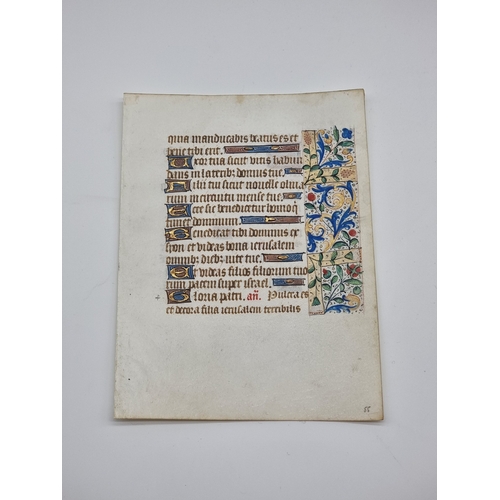 quia manducabis beatus es et
bene tibi erit.
Uxor tua sicut vitis habun
dans in laterib; domus tue.
Filii tui sicut novelle oliva
rum in circuitu mense tue.
Ecce sic benedicetur homo q
timet dominum
Benedicat tibi dominus ex
syon et videas bona ierusalem
omnib; dieb; vite tue.
Et videas filios filiorum tuo
rum pacem super israel.
Gloria patri. añ. Pulcra es
et decora filia ierusalem terribilis